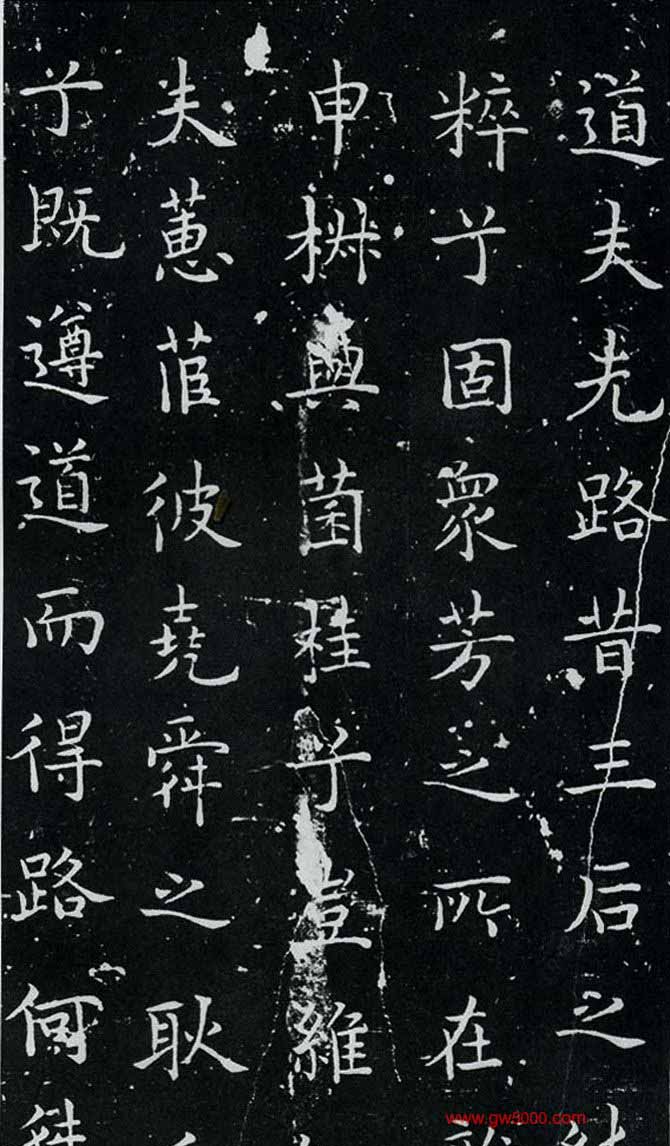 道夫先路昔三后之
粹兮固衆芳之所在
申椒與菌桂兮豈維
夫蕙茝彼堯舜之耿
兮既遵道而得路何
www.gw8000.com